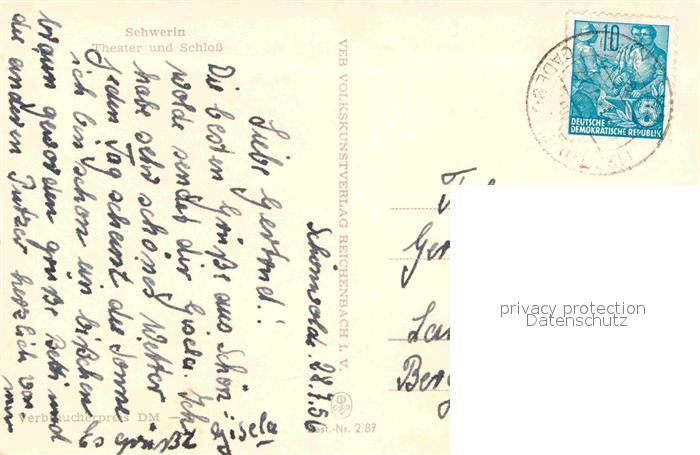 Schwerin
Theater und Schloß
Schönwolde. 28.7.56
Liebe Gertrud!
Die besten Grüße aus Schön
wolde sendet dir Gisela. Ich
habe sehr schönes Wetter
jeden Tag scheint die Sonne
ich bin schon ein bißchen
braun geworden grüße Betti und
die anderen Putzer herzlich von
mir
Es grüßt
Gisela
Verbraucherpreis DM
VEB VOLKSKUNSTVERLAG REICHENBACH i. V.
Best.-Nr. 2/87
10
5
DEUTSCHE
DEMOKRATISCHE REPUBLIK
Ger
Berg
privacy protection
Datenschutz